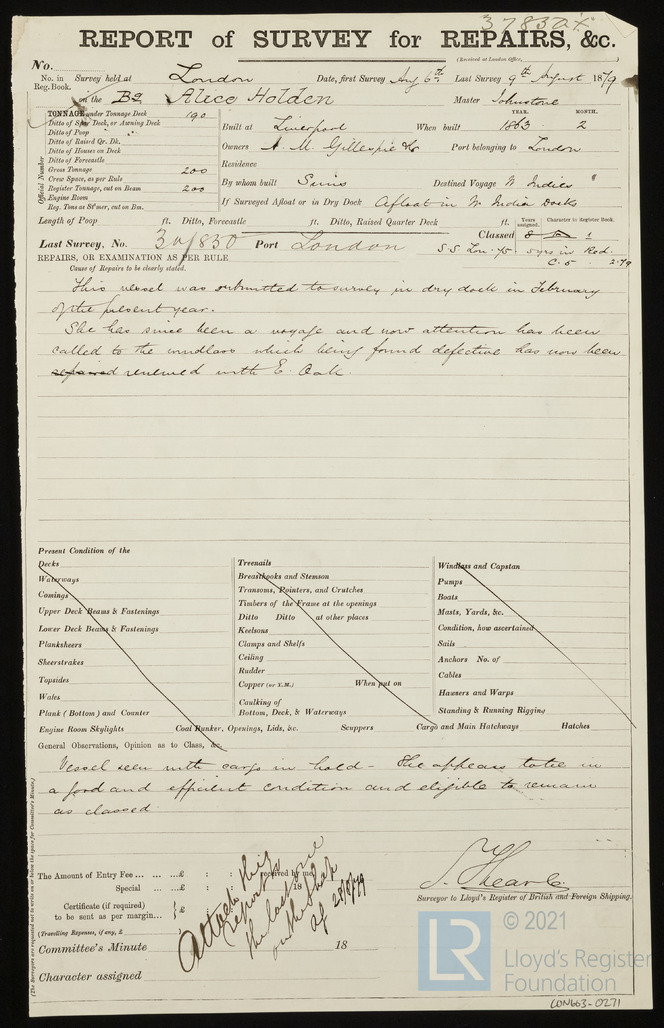 37830
REPORT of SURVEY for REPAIRS, &c.
(Received at London Office,
No.
No. in Reg. Book. Survey held at London Date, first Survey Aug 6th Last Survey 9th August 1879
on the Bg Alice Holden Master Johnstone
TONNAGE under Tonnage Deck 190
Ditto of Spar Deck, or Awning Deck
Ditto of Poop
Ditto of Raised Qr. Dk.
Ditto of Houses on Deck
Ditto of Forecastle
Gross Tonnage 200
Crew Space, as per Rule
Register Tonnage, cut on Beam 200
Engine Room
Reg. Tons as St'mer, cut on Bm.
Official Number
YEAR. MONTH.
Built at Liverpool When built 1863 2
Owners A. M. Gillespie & Co Port belonging to London
Residence
By whom built Sims Destined Voyage W Indies
If Surveyed Afloat or in Dry Dock Afloat in W India Docks
Length of Poop ft. Ditto, Forecastle ft. Ditto, Raised Quarter Deck ft.
Years assigned. Character in Register Book.
Last Survey, No. 30/830 Port London Classed 8 A 1
S.S Lon. 75 5 yrs in Red.
C. 5 . 2.79
REPAIRS, OR EXAMINATION AS PER RULE
Cause of Repairs to be clearly stated.
This vessel was submitted to survey in dry dock in February
of the present year.
She has since been a voyage and now attention has been
called to the windlass which being found defective has now been
repaired renewed with E. Oak.
Present Condition of the
Decks
Waterways
Comings
Upper Deck Beams & Fastenings
Lower Deck Beams & Fastenings
Planksheers
Sheerstrakes
Topsides
Wales
Plank (Bottom) and Counter
Treenails
Breasthooks and Stemson
Transoms, Pointers, and Crutches
Timbers of the Frame at the openings
Ditto Ditto at other places
Keelsons
Clamps and Shelfs
Ceiling
Rudder
Copper (or Y.M.) When put on
Caulking of
Bottom, Deck, & Waterways
Windlass and Capstan
Pumps
Boats
Masts, Yards, &c.
Condition, how ascertained
Sails
Anchors No. of
Cables
Hawsers and Warps
Standing & Running Rigging
Engine Room Skylights Coal Bunker, Openings, Lids, &c. Scuppers Cargo and Main Hatchways Hatches
General Observations, Opinion as to Class, &c.
Vessel seen with cargo in hold - She appears to be in
a good and efficient condition and eligible to remain
as classed
The Amount of Entry Fee ... ... ... £ : : received by me,
Special ... ... £ : : 18
Certificate (if required) to be sent as per margin... £ : :
(Travelling Expenses, if any, £
Committee's Minute 18
Character assigned
Attach this
report to
the last one
on the Ship
28/8/79
Surveyor to Lloyd's Register of British and Foreign Shipping.
(The Surveyors are requested not to write on or below the space for Committee's Minute.)
LR
© 2021
Lloyd's Register
Foundation
LON663-0271